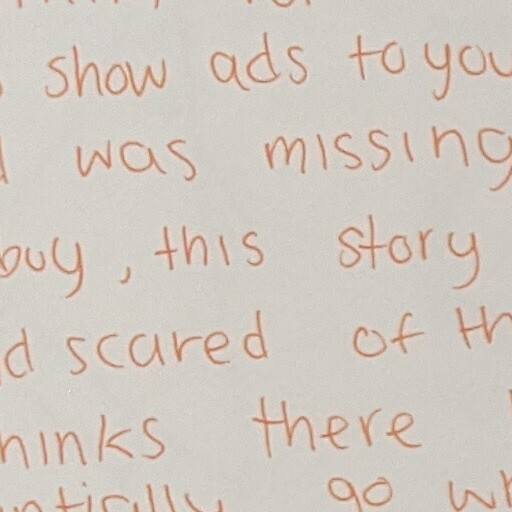 show ads to you
was missing
buy, this story
scared of th
hinks there
go wh